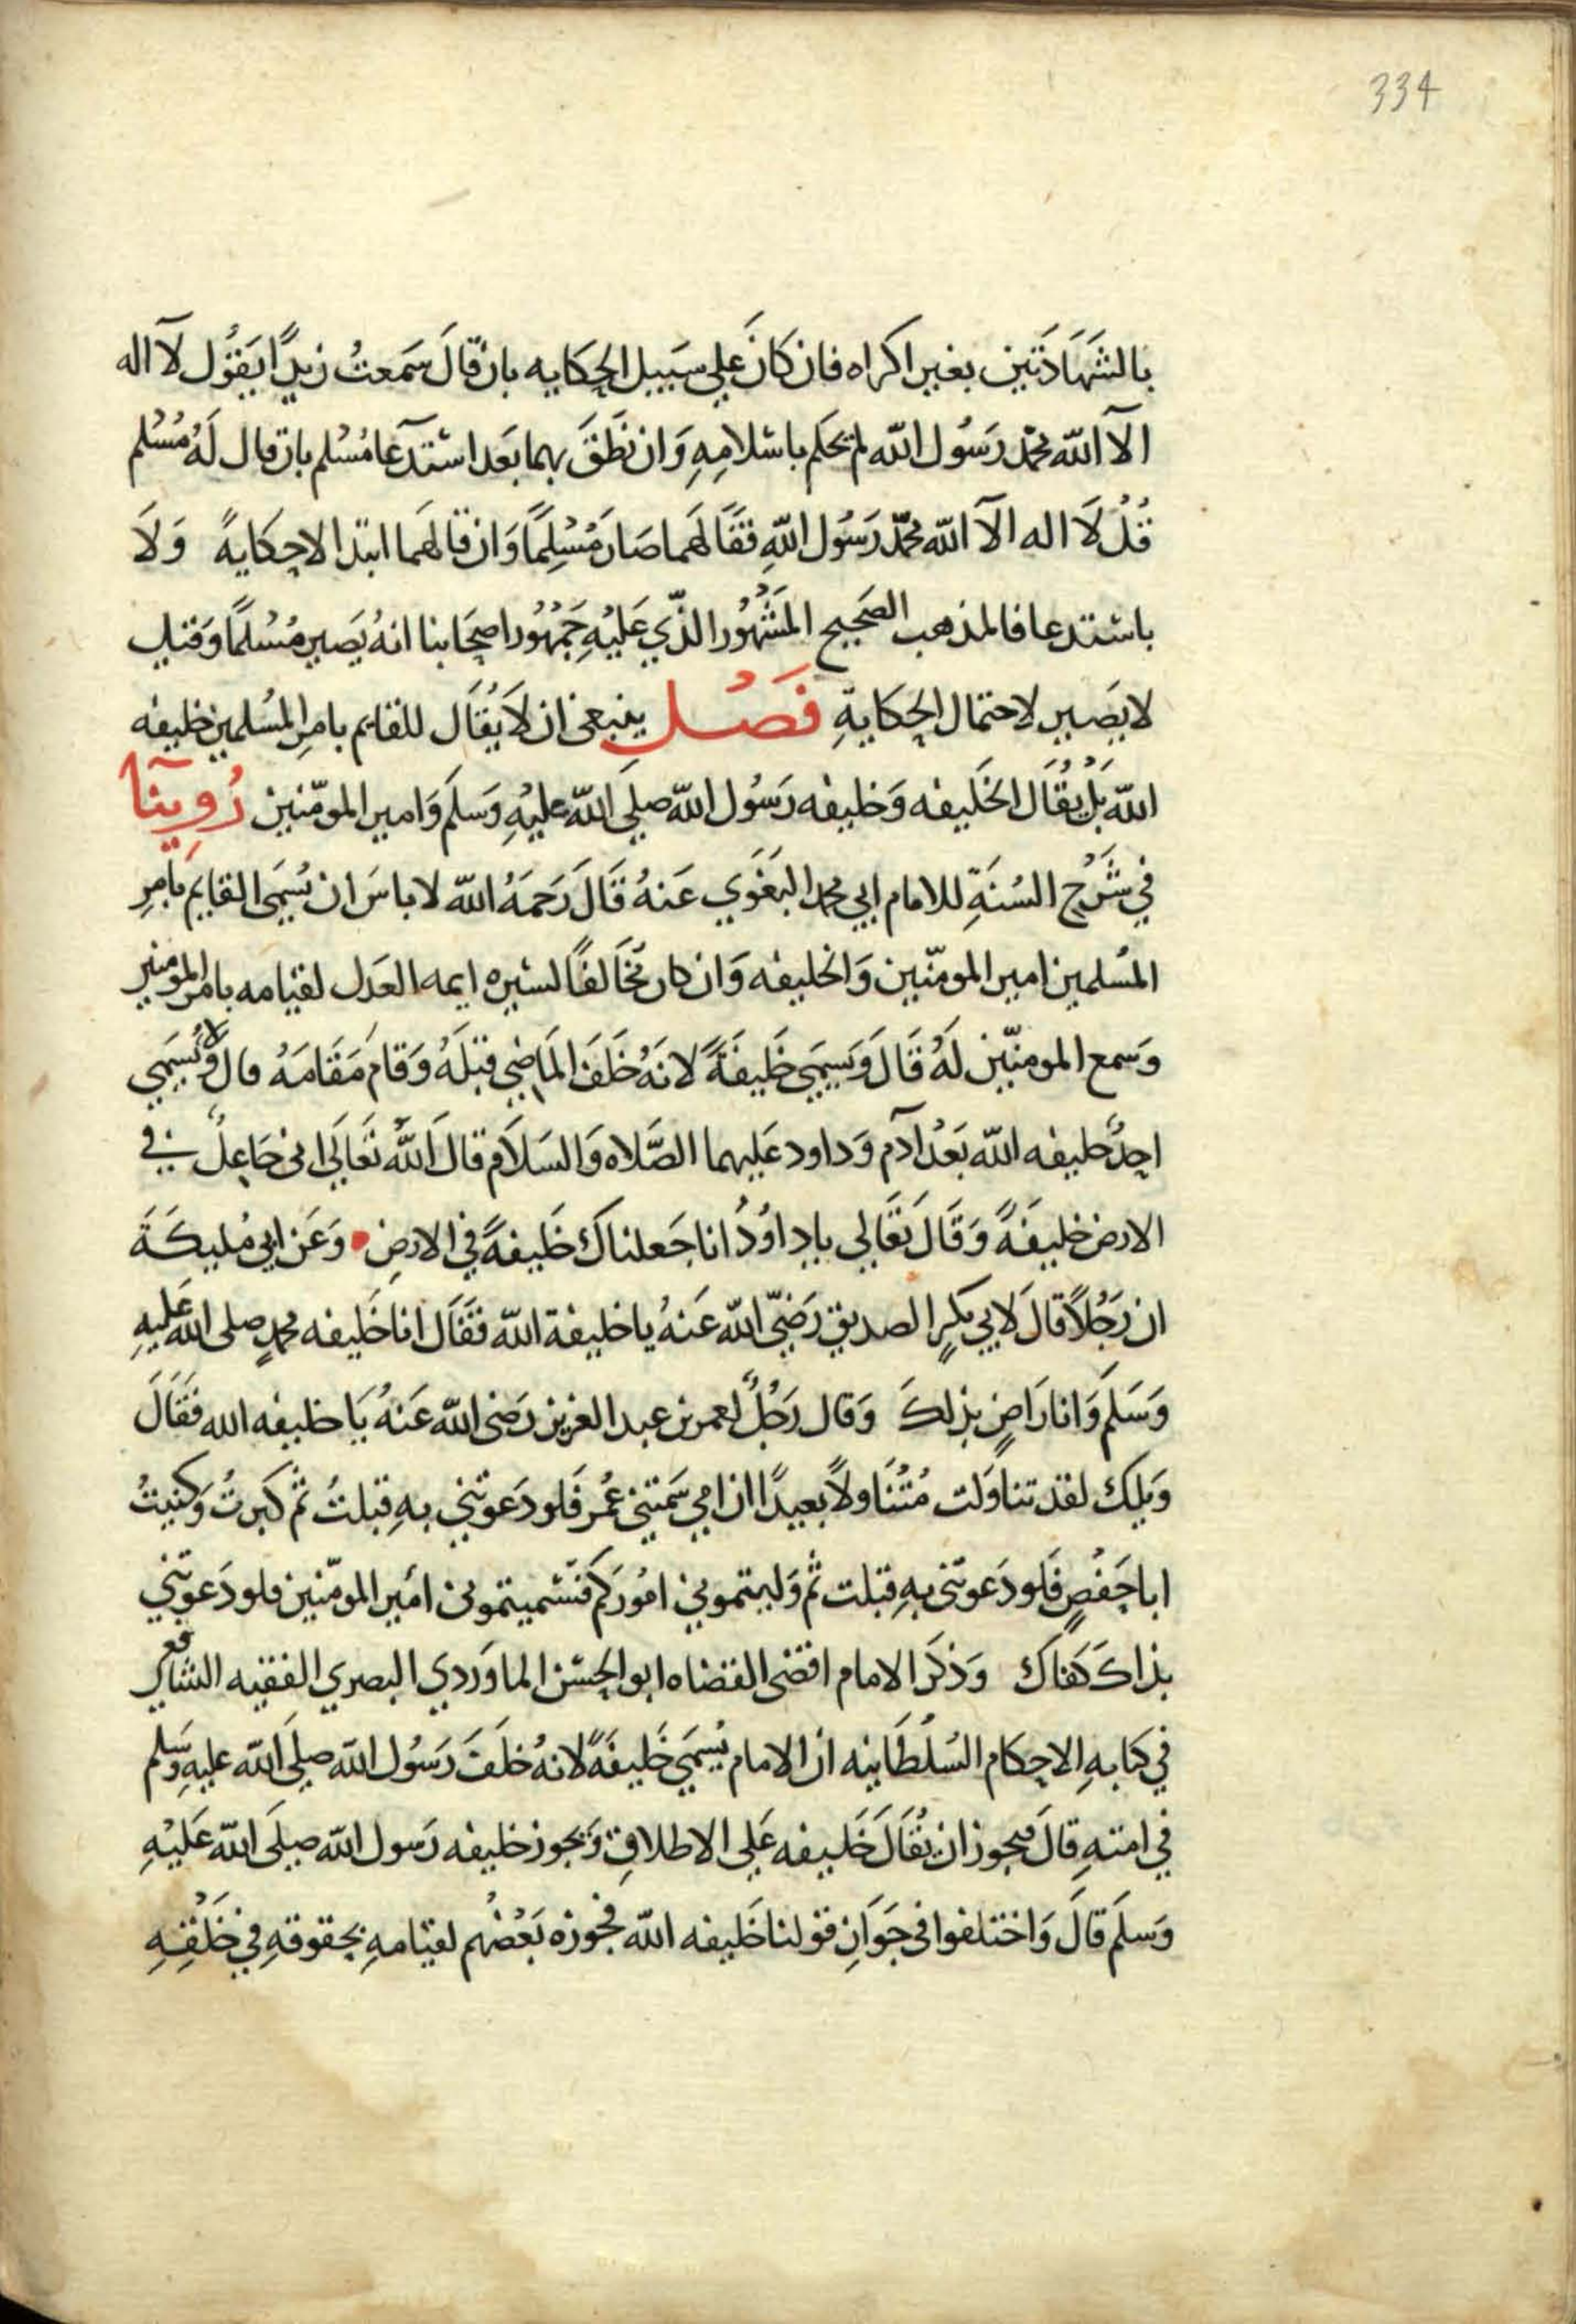 334
بالشَهَادَتين بغير اكراه فان كانَ علي سَبيل الحِكايه بان قالَ سَمعتُ زيدًا يقوُل لآ اله
الآ الله محمد رَسُول الله لم يحكم باسْلامِهِ وَان نَطَقَ بهما بَعد استدعآ مُسْلم بان قال لَهُ مُسْلم
قُلْ لَا اله الآ الله محمّد رَسُول اللهِ فقَالهمَا صَارَ مُسْلِمًا وَان قالهما ابتدا لا حِكايةً وَلَا
باستدعا فالمذهب الصَحيح المَشْهُور الذّي عَليْهِ جَمْهُور اصحَابنا انهُ يَصير مُسْلمًا وَقيل
لا يَصير لاحتمال الحِكَايةِ فَصْل ينبغى ان لَا يُقَال للقايم بامرِ المسُلمين خليفه
الله بَلْ يُقَال الخَليفه وَخليفه رَسُول الله صلي الله عليْهِ وَسلمَ وَامير المومّنين رُوِينآ
في شَرْح السُنَةِ للامام ابي محمد البَغَوَي عَنهُ قَالَ رَحمَهُ الله لا باسَ ان يُسَمَى القايم بامرِ
المسُلمين امير المومّنين وَالخليفه وَان كان مُخَالفًا لسيره ايمه العَدل لقيامه بامر المومنين
وَسمع المومنّين لَهُ قَالَ وَيسمَي خَليفَةً لانَهُ خَلَفَ المَاضِي قبَلَهُ وَقامَ مَقَامَهُ قال وَلا يُسَمَي
احدٌ خليفه الله بَعْدَ آدَم وَداود عَليهما الصَّلاه وَالسَلاَم قالَ اللهُ تَعَالَى اني جَاعِلٌ في
الارض خليفَةً وَقَالَ تعَالي ياداوُدُ انا جَعلناكَ خَليفةً في الارضِ وَعَن ابي مُليكَةَ
ان رَجُلاً قالَ لابي بَكرٍ الصديق رَضيّ الله عَنهُ يا خليفة الله فقَال انا خَليفه محمدٍ صلى الله عَليهِ
وَسَلمَ وَانا رَاضٍ بذلكَ وَقال رَجُلٌ لعمر بن عبد العزيز رَضى الله عَنهُ يَا خليفه الله فقَالَ
وَيلكَ لقد تناوَلت مُتنَاوَلاً بعيدًا ان امي سَمتني عُمَر فَلو دَعوَتني بهِ قبلتُ ثم كبرتُ وَكنيتُ
ابا حَفْصٍ فَلو دَعوَتنى بهِ قبلت ثم وَليتموني امُورَكم فَسَّميتموني اميَر المومّنين فلو دَعوتني
بذاكَ كَفاكَ وَذكَر الامام اقضى القضاه ابو الحسَن الماوَردي البصري الفقيه الشافعي
في كتابهِ الاحكام السُلْطَانيه ان الامام يُسَمَي خَليفَةً لانهُ خلَفَ رَسُول الله صلي الله عليهِ وَسَلم
في امتهِ قالَ فيجوز ان يُقَالَ خَليفه عَلى الاطلاقِ وَيجوز خليفه رَسول الله صلَى الله عَليْهِ
وَسلَمَ قالَ وَاختلفوا فى جَوَازِ قولنا خَليفه الله فجوزه بَعْضهم لقيامهِ بحقوقهِ في خَلْقِهِ